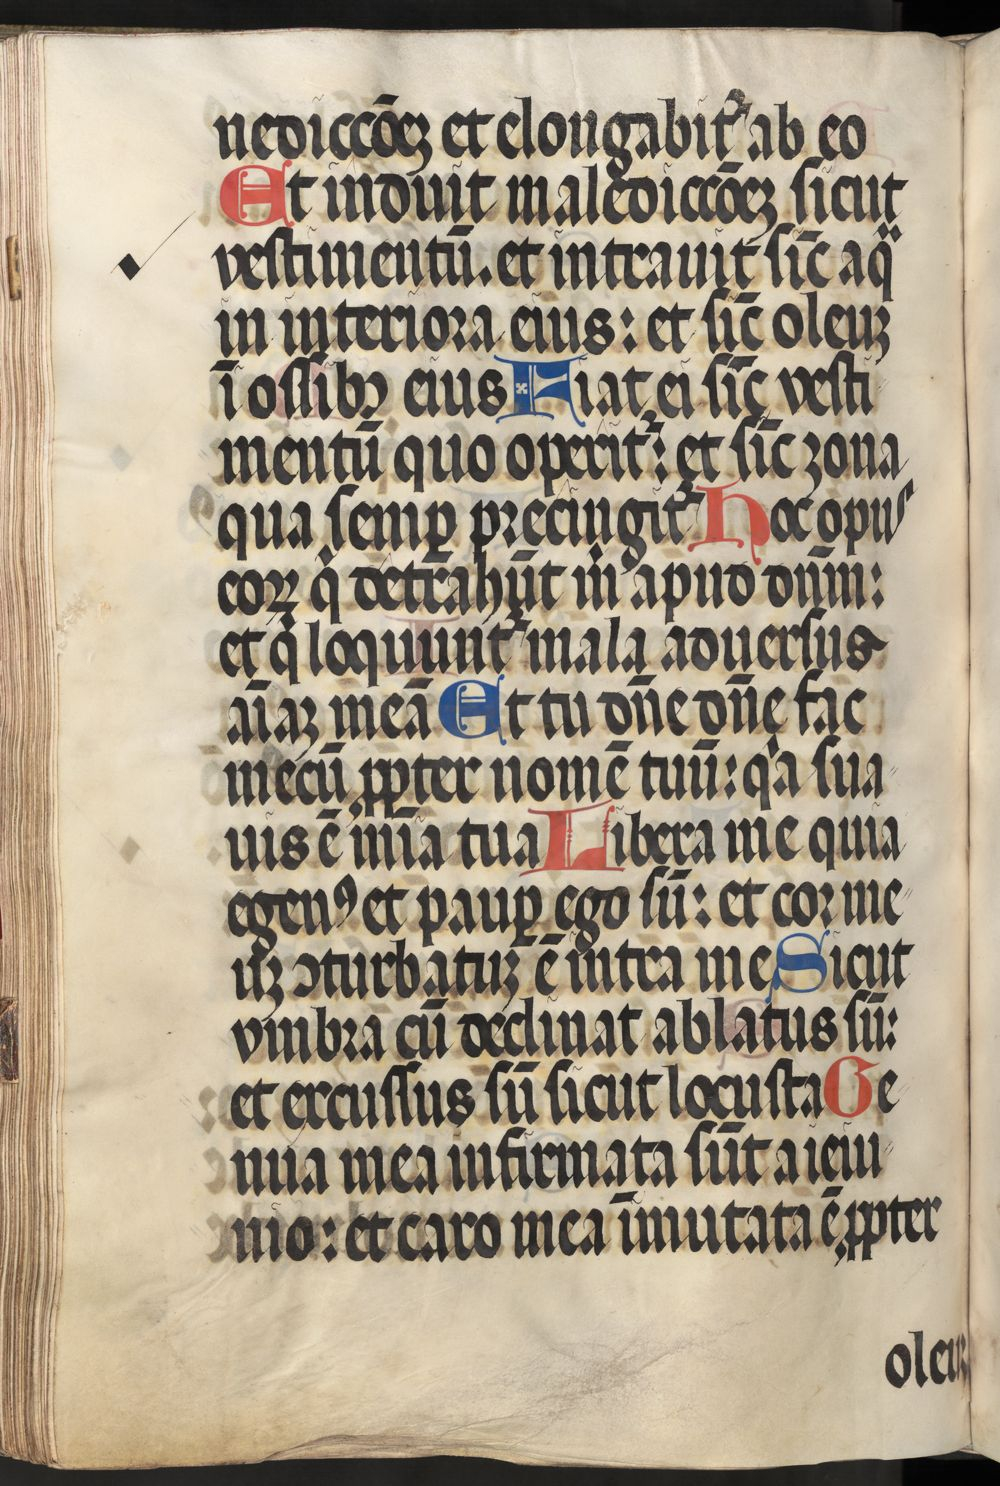 nediccōeꝫ et elongabit᷑ ab eo
Et induit malediccōeꝫ sicut
vestimentū. et intrauit sic̄ aqᷓ
in interiora eius: et sic̄ oleuꝫ
ī ossibꝰ eius Fiat ei sic̄ vesti
mentū quo operit᷑: et sic̄ zona
qua semꝑ precingit᷑ Hoc opus
eoꝝ qͥ detrahūt mͥ apud dūm:
et qͥ loquunt᷑ mala aduersus
aīaꝫ meā Et tu dn̄e dn̄e fac
mecū ꝓpter nomē tuū: qͥa sua
uis ē mīa tua Libera me quia
egenꝰ et pauꝑ ego sū: et cor me
uꝫ ꝯturbatuꝫ ē intra me Sicut
vmbra cū declinat ablatus sū:
et excussus sū sicut locusta Ge
nua mea infirmata sūt a ieiu
nio: et caro mea īmutata ē ꝓpter
oleuꝫ